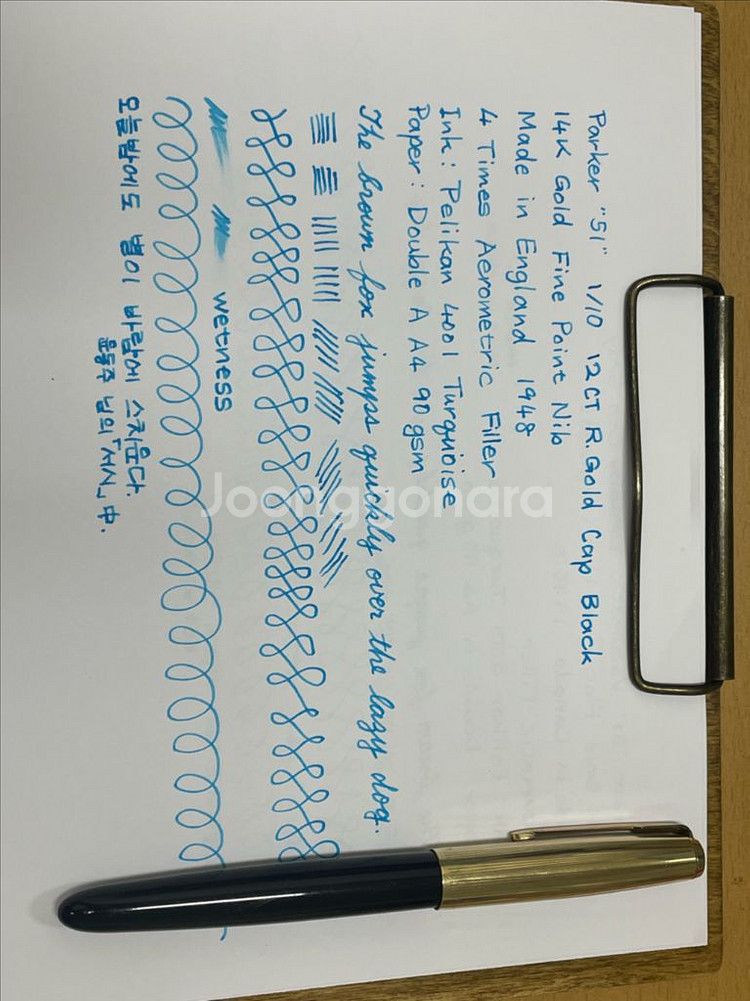 Parker "51" 1/10 12CT R.Gold Cap Black
14K Gold Fine Point Nib
Made in England 1948
4 Times Aerometric Filler
Ink: Pelikan 4001 Turquoise
Paper: Double A A4 90gsm
The brown fox jumps quickly over the lazy dog.
wetness
오늘밤에도 별이 바람에 스치운다.
윤동주 님의 「서시」 中.
Joonggonara